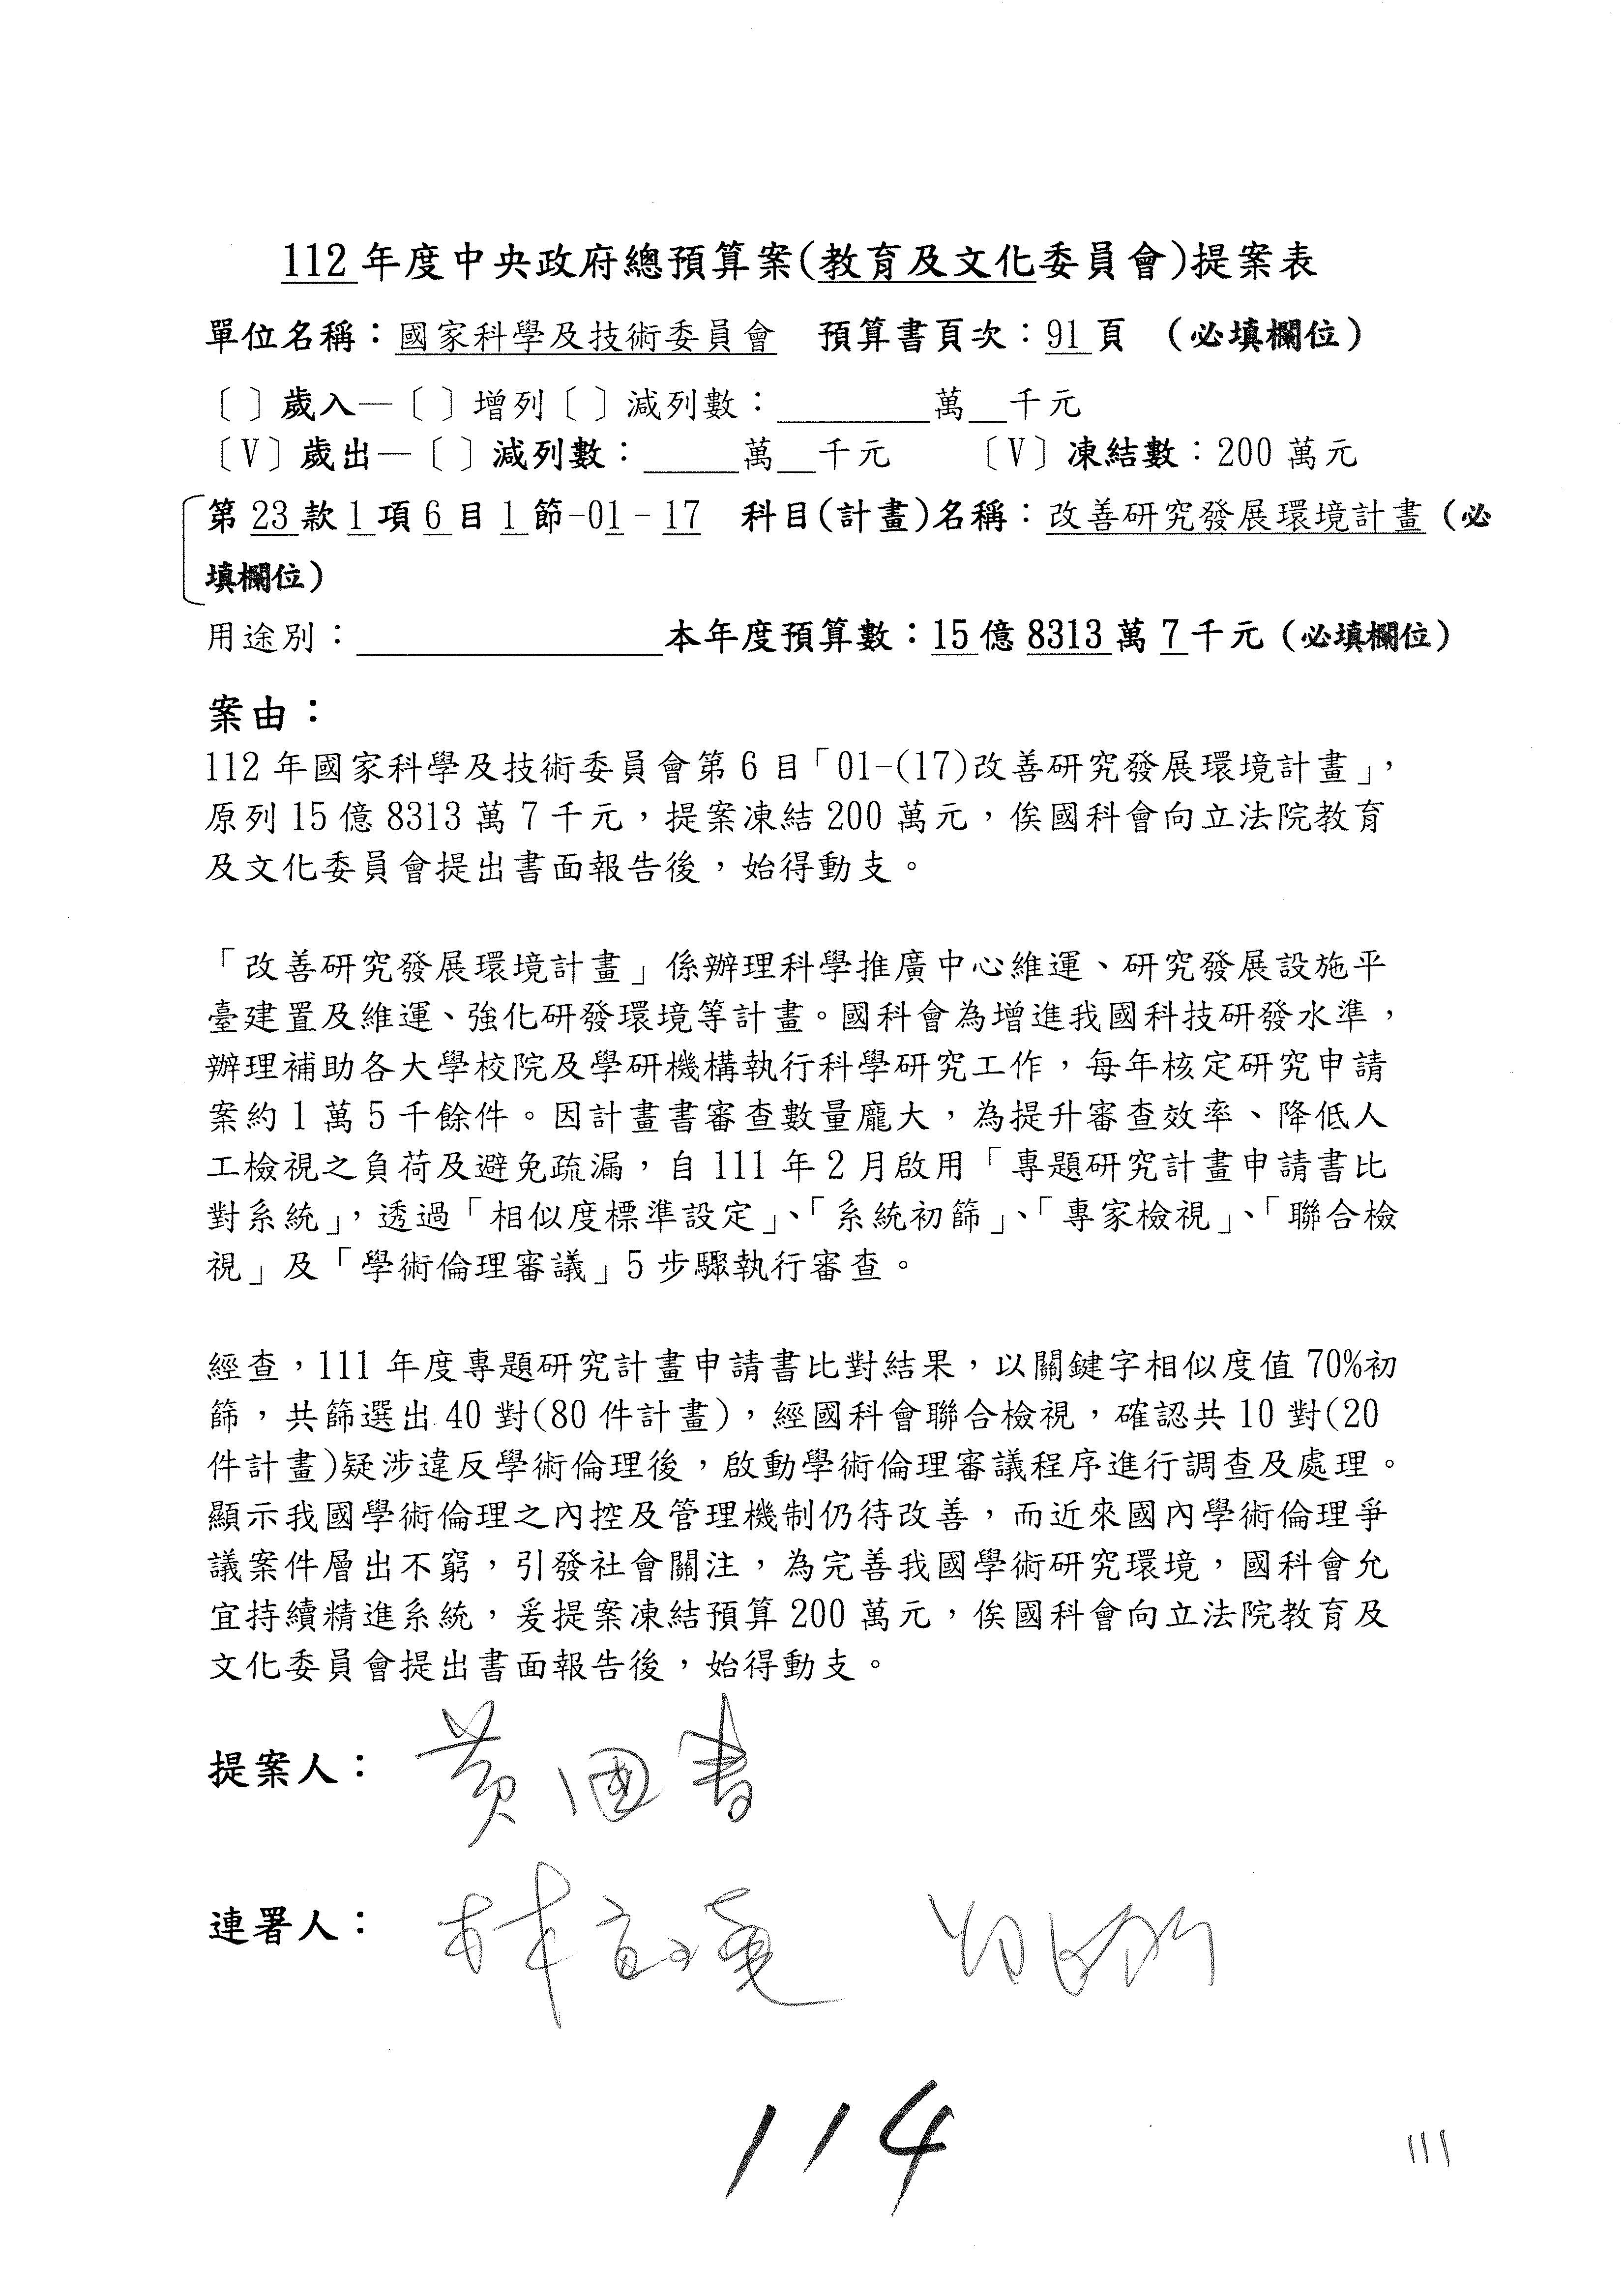 112年度中央政府總預算案(教育及文化委員會)提案表
單位名稱：國家科學及技術委員會　預算書頁次：91頁　(必填欄位)
〔 〕歲入—〔 〕增列〔 〕減列數：________萬__千元
〔V〕歲出—〔 〕減列數：_____萬__千元　〔V〕凍結數：200萬元
第23款1項6目1節-01-17　科目(計畫)名稱：改善研究發展環境計畫(必
填欄位)
用途別：________________本年度預算數：15億8313萬7千元(必填欄位)
案由：
112年國家科學及技術委員會第6目「01-(17)改善研究發展環境計畫」，
原列15億8313萬7千元，提案凍結200萬元，俟國科會向立法院教育
及文化委員會提出書面報告後，始得動支。
「改善研究發展環境計畫」係辦理科學推廣中心維運、研究發展設施平
臺建置及維運、強化研發環境等計畫。國科會為增進我國科技研發水準，
辦理補助各大學校院及學研機構執行科學研究工作，每年核定研究申請
案約1萬5千餘件。因計畫書審查數量龐大，為提升審查效率、降低人
工檢視之負荷及避免疏漏，自111年2月啟用「專題研究計畫申請書比
對系統」，透過「相似度標準設定」、「系統初篩」、「專家檢視」、「聯合檢
視」及「學術倫理審議」5步驟執行審查。
經查，111年度專題研究計畫申請書比對結果，以關鍵字相似度值70%初
篩，共篩選出40對(80件計畫)，經國科會聯合檢視，確認共10對(20
件計畫)疑涉違反學術倫理後，啟動學術倫理審議程序進行調查及處理。
顯示我國學術倫理之內控及管理機制仍待改善，而近來國內學術倫理爭
議案件層出不窮，引發社會關注，為完善我國學術研究環境，國科會允
宜持續精進系統，爰提案凍結預算200萬元，俟國科會向立法院教育及
文化委員會提出書面報告後，始得動支。
提案人：黃國書
連署人：林宜
114
111